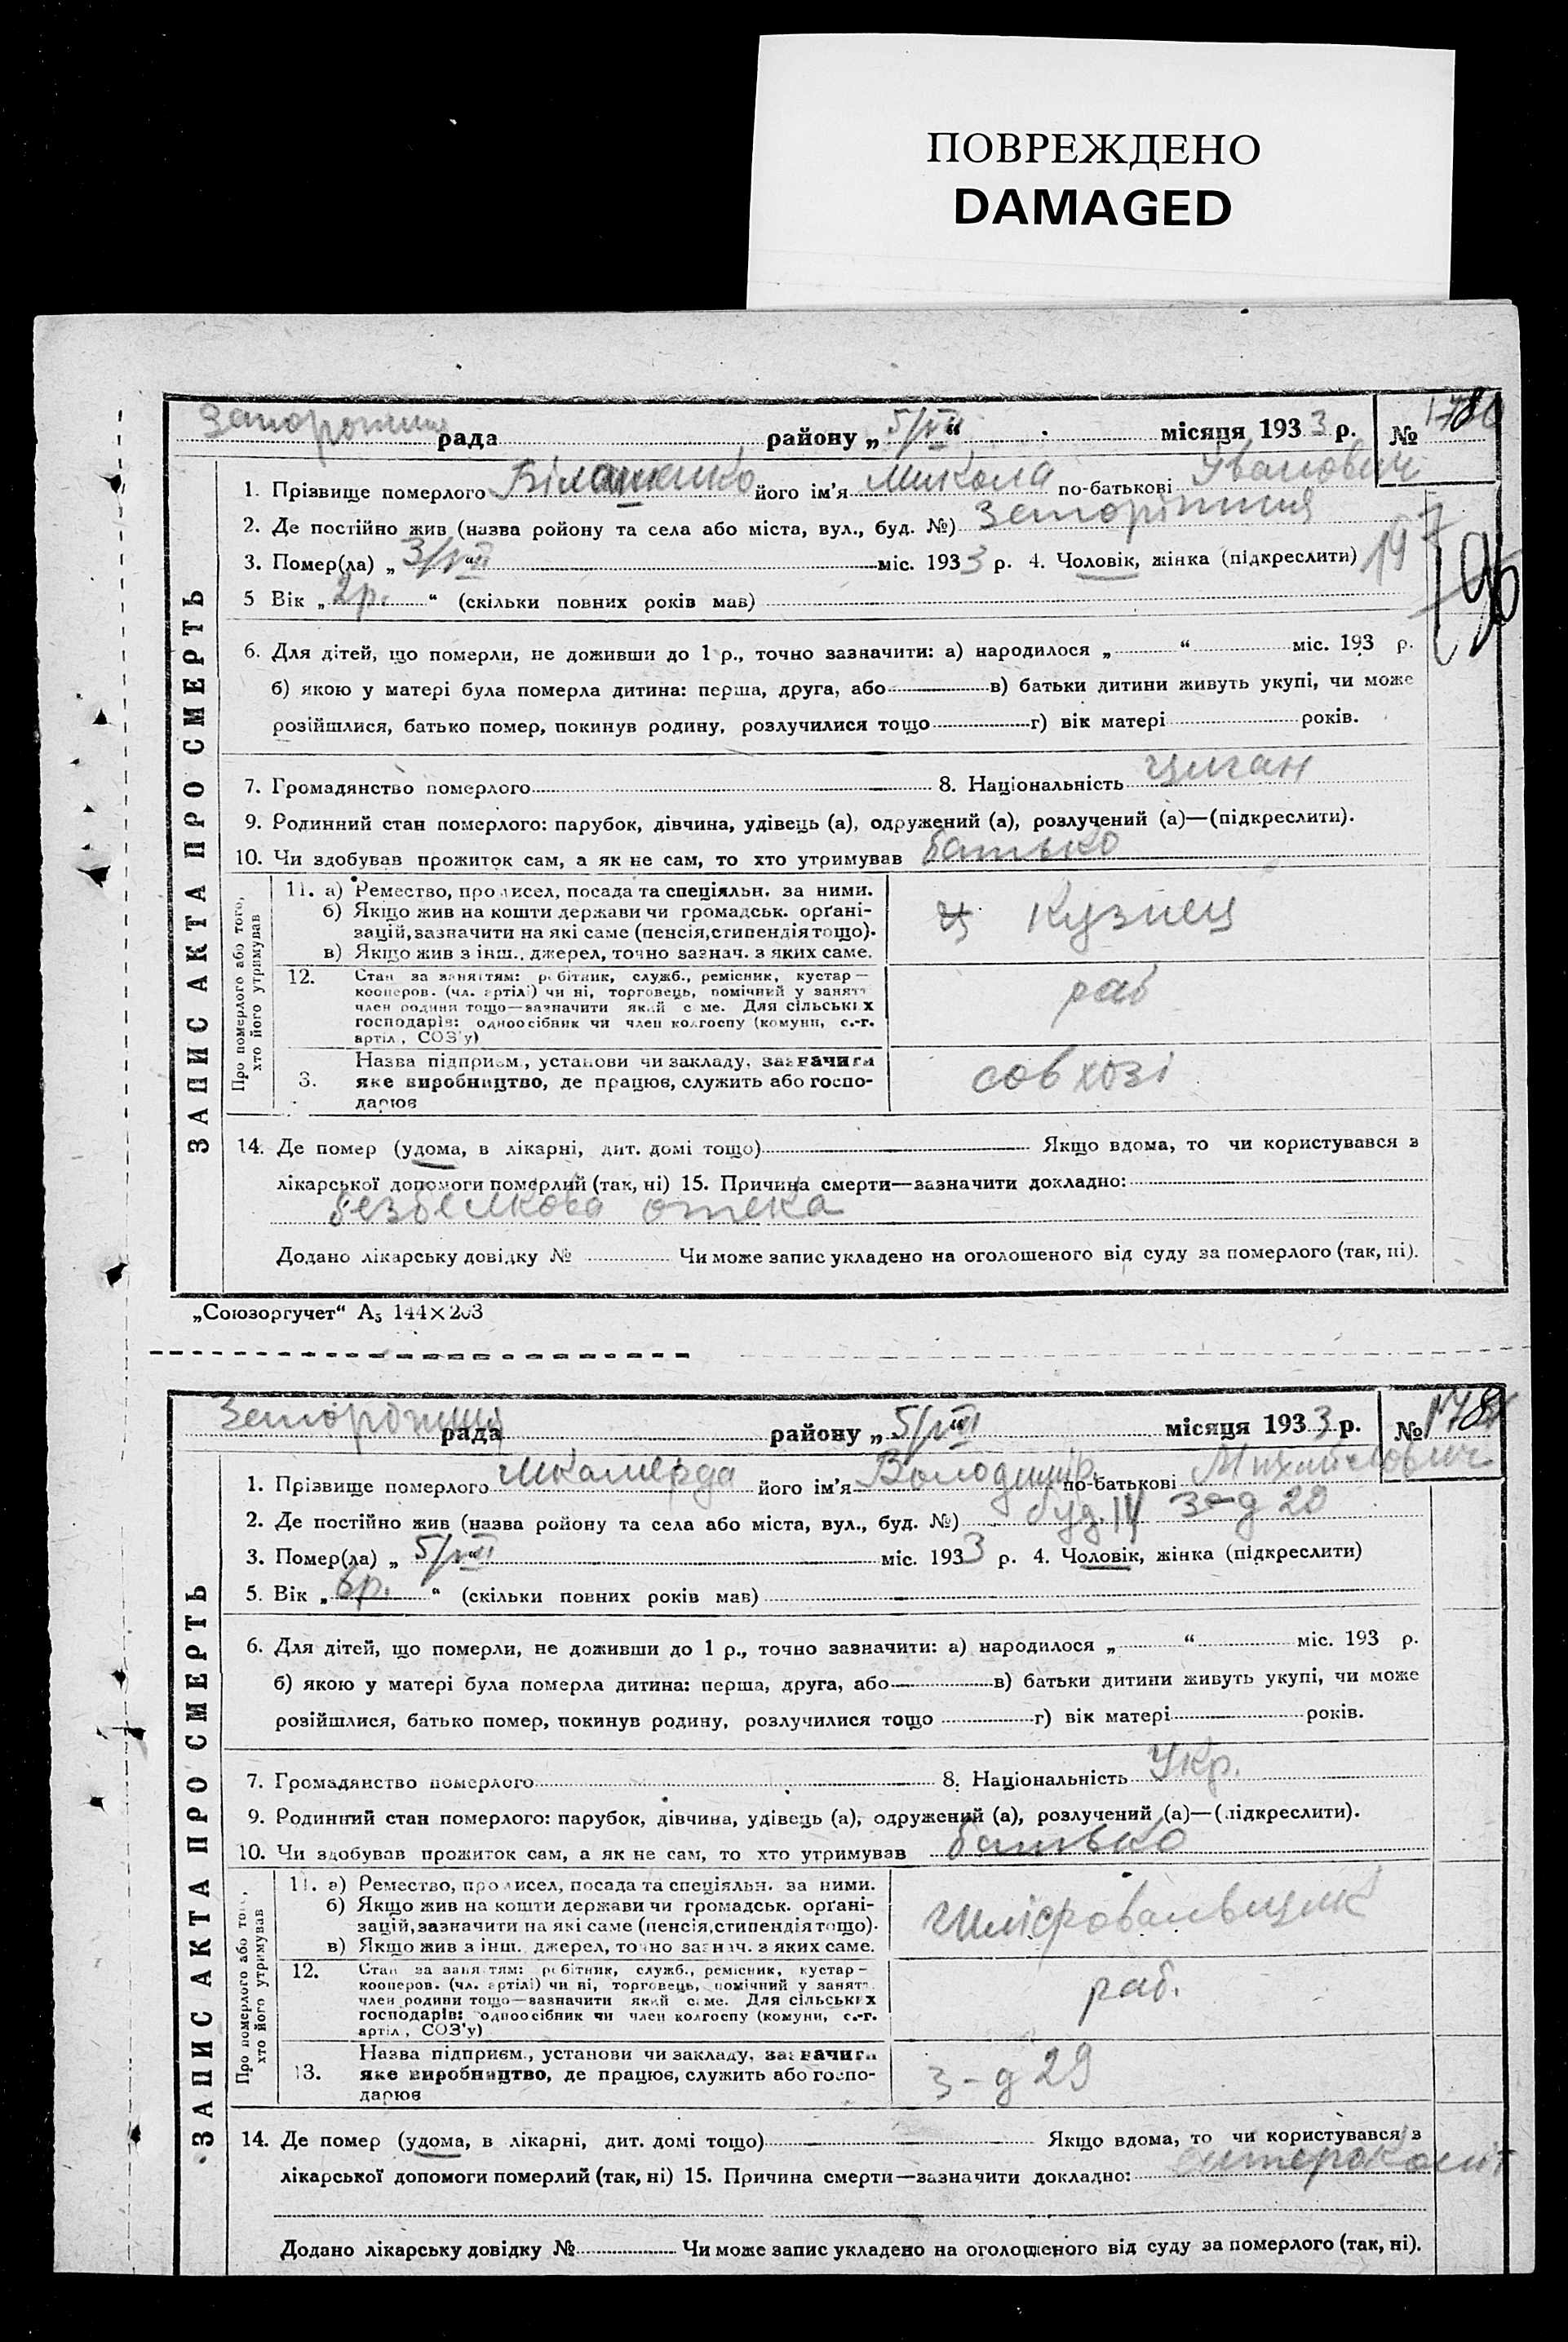 ПОВРЕЖДЕНО
DAMAGED
рада районy „ 5/VII “ місяця 1933 р. №
1. Прізвище померлого його ім'я Микола по-батькові Іванович
2. Де постійно жив (назва ройону та села або міста, вул., буд. №)
3. Помер(ла) „ 3/VII “ міс. 1933 р. 4. Чоловік, жінка (підкреслити) 197
196
5 Вік „ 2р. “ (скільки повних років мав)
6. Для дітей, що померли, не доживши до 1 р., точно зазначити: а) народилося „ “ міс. 193 р.
б) якою у матері була померла дитина: перша, друга, або в) батьки дитини живуть укупі, чи може
розійшлися, батько помер, покинув родину, розлучилися тощо г) вік матері років.
7. Громадянство померлого 8. Національність циган
9. Родинний стан померлого: парубок, дівчина, удівець (а), одружений (а), розлучений (а)—(підкреслити).
10. Чи здобував прожиток сам, а як не сам, то хто утримував батько
ЗАПИС АКТА ПРО СМЕРТЬ
Про померлого або того, хто його утримував
11. а) Ремество, промисел, посада та спеціяльн. за ними.
б) Якщо жив на кошти держави чи громадськ. орґані-
зацій, зазначити на які саме (пенсія, стипендія тощо).
в) Якщо жив з інш. джерел, точно зазнач. з яких саме.
Кузнец
12. Стан за заняттям: робітник, служб., ремісник, кустар—
кооперов. (чл. артілі) чи ні, торговець, помічний у занятт
член родини тощо—зазначити який саме. Для сільських
господарів: одноосібник чи член колгоспу (комуни, с.-г.
артіл, СОЗ'у)
раб
3. Назва підприєм., установи чи закладу, зазначити
яке виробництво, де працює, служить або госпо-
дарює
совхозі
14. Де помер (удома, в лікарні, дит. домі тощо) Якщо вдома, то чи користувався з
лікарської допомоги померлий (так, ні) 15. Причина смерти—зазначити докладно:
безбелкова отека
Додано лікарську довідку № Чи може запис укладено на оголошеного від суду за померлого (так, ні).
„Союзоргучет“ А5 144×203
рада району „ 5/VII “ місяця 1933 р. №
1. Прізвище померлого його ім'я Володимір по-батькові Михайлович
2. Де постійно жив (назва району та села або міста, вул., буд. №) буд. IV з-д 29
3. Помер(ла) „ 5/VII “ міс. 1933 р. 4. Чоловік, жінка (підкреслити)
5. Вік „ “ (скільки повних років мав)
6. Для дітей, що померли, не доживши до 1 р., точно зазначити: а) народилося „ “ міс. 193 р.
б) якою у матері була померла дитина: перша, друга, або в) батьки дитини живуть укупі, чи може
розійшлися, батько помер, покинув родину, розлучилися тощо г) вік матері років.
7. Громадянство померлого 8. Національність Укр.
9. Родинний стан померлого: парубок, дівчина, удівець (а), одружений (а), розлучений (а)—(підкреслити).
10. Чи здобував прожиток сам, а як не сам, то хто утримував батько
ЗАПИС АКТА ПРО СМЕРТЬ
Про померлого або того, хто його утримував
11. а) Ремество, промисел, посада та спеціяльн. за ними.
б) Якщо жив на кошти держави чи громадськ. орґані-
зацій, зазначити на які саме (пенсія, стипендія тощо).
в) Якщо жив з інш. джерел, точно зазнач. з яких саме.
12. Стан за заняттям: робітник, служб., ремісник, кустар—
кооперов. (чл. артілі) чи ні, торговець, помічний у занятт
член родини тощо—зазначити який саме. Для сільських
господарів: одноосібник чи член колгоспу (комуни, с.-г.
артіл, СОЗ'у)
раб.
13. Назва підприєм., установи чи закладу, зазначити
яке виробництво, де працює, служить або госпо-
дарює
з-д 29
14. Де помер (удома, в лікарні, дит. домі тощо) Якщо вдома, то чи користувався з
лікарської допомоги померлий (так, ні) 15. Причина смерти—зазначити докладно: ентероколіт
Додано лікарську довідку № Чи може запис укладено на оголошеного від суду за померлого (так, ні).